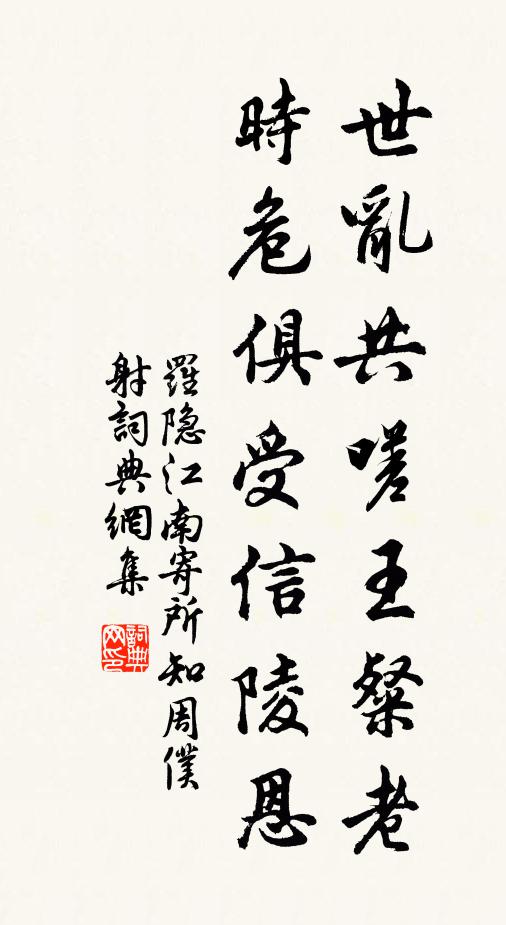 世亂共嗟王粲老
時危俱受信陵恩
羅隐江南寄所知周僕
射詞典網集
詞典
网印